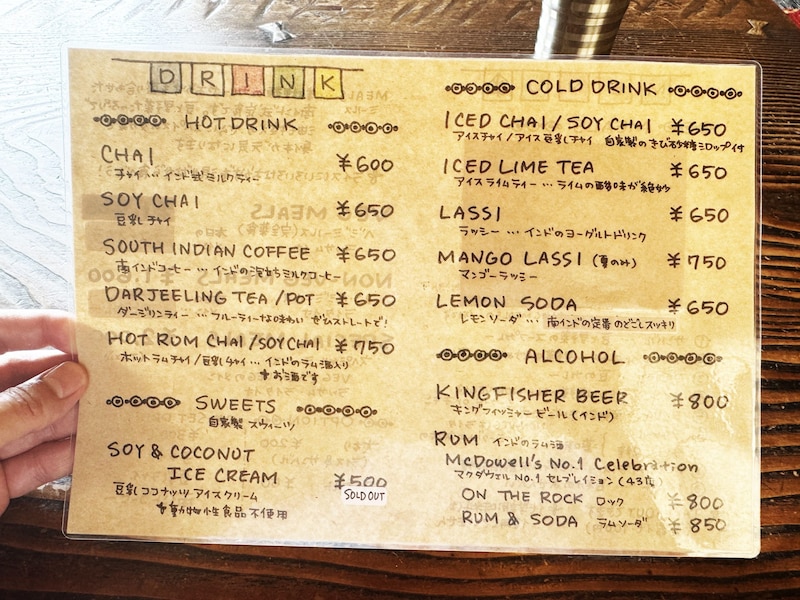 DRINK
HOT DRINK
CHAI ¥600
チャイ … インド式ミルクティー
SOY CHAI ¥650
豆乳チャイ
SOUTH INDIAN COFFEE ¥650
南インドコーヒー … インドの泡立ちミルクコーヒー
DARJEELING TEA /POT ¥650
ダージリンティー … フルーティーな味わい ぜひストレートで!
HOT RUM CHAI /SOY CHAI ¥750
ホットラムチャイ/豆乳チャイ … インドのラム酒入り
お酒です
SWEETS
自家製 スウィーツ
SOY & COCONUT
ICE CREAM ¥500
豆乳ココナッツ アイスクリーム SOLD OUT
動物性食品不使用
COLD DRINK
ICED CHAI / SOY CHAI ¥650
アイスチャイ/アイス豆乳チャイ 自家製のきび砂糖シロップ付
ICED LIME TEA ¥650
アイスライムティー … ライムの酸味が絶妙
LASSI ¥650
ラッシー … インドのヨーグルトドリンク
MANGO LASSI (夏のみ) ¥750
マンゴーラッシー
LEMON SODA ¥650
レモンソーダ … 南インドの定番 のどごしスッキリ
ALCOHOL
KINGFISHER BEER ¥800
キングフィッシャービール (インド)
RUM インドのラム酒
McDowell's No.1 Celebration
マクダウェル No.1 セレブレイション (43度)
ON THE ROCK ロック ¥800
RUM & SODA ラムソーダ ¥850